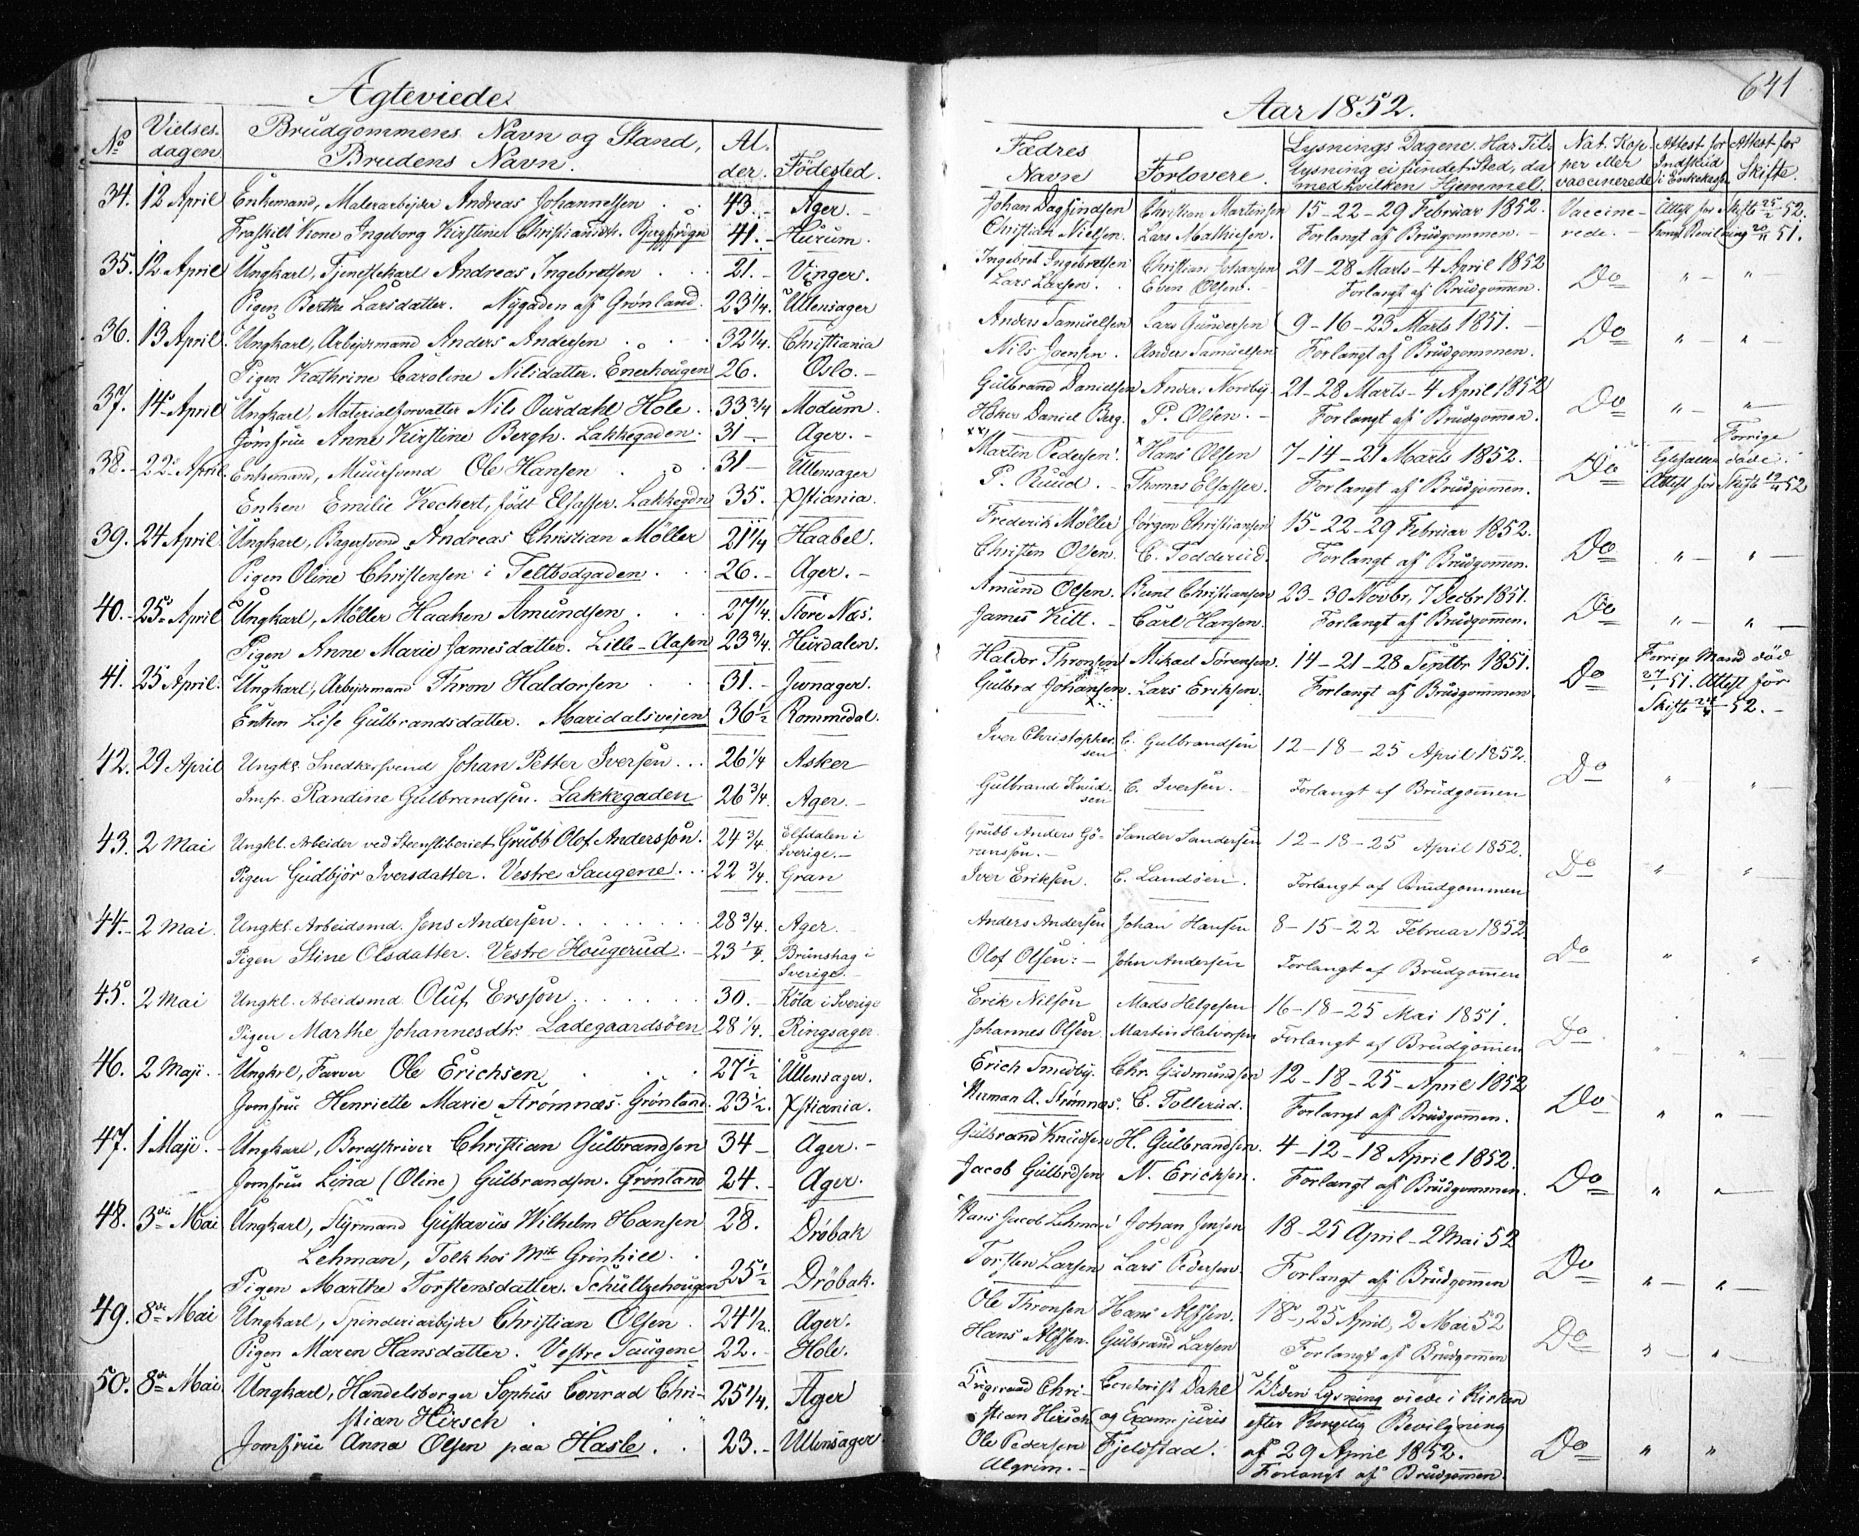 Ægteviede.
No
Vielses-
dagen
Brudgommens Navn og Stand,
Brudens Navn.
Al-
der.
Födested.
34. 12 April Enkemand, Malerarbejder Andreas Johannessen 43. Ager.
Fraskilt Kone Ingeborg Kirstine Christiansdtr. 41. Hurum.
35. 12 April Ungkarl, Tjenestekarl Andreas Ingebretsen 21. Vinger.
Pigen Berthe Larsdatter. Nygaden af Grønland. 23 1/4. Ullensager
36. 13 April. Ungkarl, Arbejdsmand Anders Andersen 32 1/4. Christiania
Pigen Kathrine Caroline Nilsdatter. Enerhougen 26. Oslo.
37. 14 April Ungkarl, Materialforvalter Nils Ourdahl Hole. 33 3/4 Modum.
Jomfrue Anne Kirstine Bergh. Lakkegaden. 31 Ager.
38. 22 April. Enkemand, Muursvend Ole Hansen 31 Ullensager
Enken Emilie Kochert, födt Elsasser. Lakkegdn 35. Xstiania.
39. 24 April Ungkarl, Bagersvend Andreas Christian Möller 21 1/4 Haabel.
Pigen Oline Christensen i Teltbodgaden 26. Ager.
40. 25 April Ungkarl, Möller Haaken Amundsen 27 1/4. Store Næs.
Pigen Anne Marie Jamesdatter. Lille-Aasen 23 3/4. Hurdalen.
41. 25 April. Ungkarl, Arbejdsmand Thron Haldorsen 31. Jevnager.
Enken Lise Gulbrandsdatter. Maridalsvejen 36 1/2 Rommedal.
42. 29 April Ungkl. Snedkersvend Johan Petter Iversen 26 1/4 Asker
Jmfr. Randine Gulbrandsen. Lakkegaden 26 3/4. Ager.
43. 2 Mai Ungkl. Arbeider ved Steensliberiet Grubb Olof Andersson. 24 3/4. Elfdalen i
Sverige.
Pigen Gudbjör Iversdatter. Vestre Saugene 22 3/4. Gran
44. 2 Mai. Ungkl. Arbeidsmd. Jens Andersen 28 3/4. Ager.
Pigen Stine Olsdatter. Vestre Hougerud. 23 1/4. Brunskag i
Sverige.
45. 2 Mai Ungkl. Arbeidsmd. Oluf Ersson 30. Köla i Sverige
Pigen Marthe Johannesdtr. Ladegaardsöen 28 1/4. Ringsager.
46. 2 Maji. Ungkrl, Farver Ole Erichsen 27 1/2 Ullensager.
Jomfrue Henriette Marie Strømnæs. Grönland. 23 1/2. Xstiania.
47. 1 Maji. Ungkarl, Bordskriver Christian Gulbrandsen 34 Ager.
Jomfrue Lina (Oline) Gulbrandsen. Grønland 24. Ager.
48. 3die Mai Ungkarl, Styrmand Gustavus Wilhelm Hansen 28. Dröbak
Lehman, Tolk hos Mstr Grinhill.
Pigen Marthe Torstensdatter. Schultzehougen 25 1/2 Dröbak.
49. 8de Mai Ungkarl, Spinderiarbejder Christian Olsen 24 1/2. Ager.
Pigen Maren Hansdatter. Vestre Saugene 22. Hole.
50. 8de Mai Ungkarl, Handelsborger Sophus Conrad Chri- 25 1/4. Ager
stian Hirsch
Jomfrue Anna Olsen paa Hasle. 23. Ullensager
641
Aar 1852.
Fædres
Navn
Forlovere.
Lysnings Dagene. Har Til-
lysning ei fundet Sted, da
med hvilken Hjemmel
Nat. Kop-
per eller
vaccinerede
Attest for
Indskud
i Enkekasse
Attest for
Skifte.
Johan Dagfindsen Christian Martinsen 15-22-29 Februar 1852. Vaccine- Attest for Skifte 25/2 52.
Christian Nielsen. Lars Mathiesen. Forlangt af Brudgommen. rede. kongl. Bevilning 20/11 51.
Ingebret Ingebretsen Christian Johansen 21-28 Marts-4 April 1852 Do " "
Lars Larsen. Even Olsen. Forlangt af Brudgommen.
Anders Samuelsen Lars Gundersen 9-16-23 Marts 1851. Do " "
Nils Joensen. Anders Samuelsen Forlangt af Brudgommen.
Gulbrand Danielsen Anders Nordby 21-28 Marts-4 April 1852 Do " "
Høker Daniel Berg. P. Olsen. Forlangt af Brudgommen.
Martin Pedersen. Hans Olsen 7-14-21 Marts 1852. Do Forrige
Egtefæller døde.
P. Ruud. Thomas Elsasser. Forlangt af Brudgommen. Attest for Skifte 19/4 52
Frederik Möller Jörgen Christiansen 15-22-29 Februar 1852. Do " "
Christen Olsen. C. Todderud. Forlangt af Brudgommen.
Amund Olsen. Bernt Christiansen 23-30 Novbr, 7 Decbr 1851. Do " "
James Kitt. Carl Hansen. Forlangt af Brudgommen.
Haldor Thronsen Mikael Sörensen. 14-21-28 Septbr 1851. Do Forrige Mand död
Gulbrd Johansen. Lars Eriksen. Forlangt af Brudgommen 27/1 51. Attest for
Skifte 52.
Iver Christopher- C. Gulbrandsen 12-18-25 April 1852. Do " "
sen
Gulbrand Knud- C. Iversen. Forlangt af Brudgommen
sen
Grubb Anders Gö- Sander Sandersen 12-18-25 April 1852. Do " "
ransson.
Iver Eriksen. C. Landöen. Forlangt af Brudgommen
Anders Andersen Johan Hansen 8-15-22 Februar 1852 Do " "
Olof Olsen. John Andersen Forlangt af Brudgommen
Erik Nilson Mads Helgesen 16-18-25 Mai 1851. Do " "
Johannes Olsen. Martin Halvorsen Forlangt af Brudgommen
Erich Smedby. Chr. Gudmundsen 12-18-25 April 1852 Do " "
Herman A. Strömnæs. C. Tollerud. Forlangt af Brudgommen.
Gulbrand Knudsen H. Gulbrandsen. 4-12-18 April 1852. Do " "
Jacob Gulbrdsen N. Ericksen. Forlangt af Brudgommen.
Hans Jacob Lehman Johan Jensen 18-25 April-2 Mai 52 Do " "
Torsten Larsen Lars Pedersen. Forlangt af Brudgommen
Ole Thronsen Hans Alfsen. 18, 25 April, 2 Mai 52 Do " "
Hans Alfsen. Gulbrand Larsen Forlangt af Brudgommen
Chri- Contorist Dahl Uden Lysning viede i Kirken
stian Hirsch og Exam. juris efter Kongelig Bevilgning
Ole Pedersen Fjeldstad. af 29 April 1852. Do " "
Algrim. Forlangt af Brudgommen.